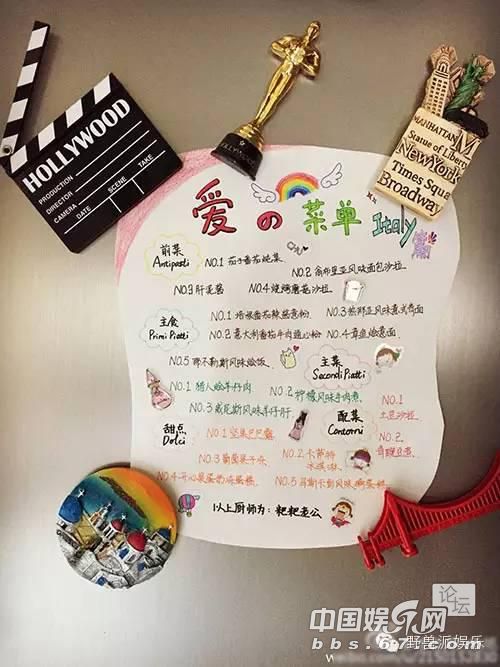 HOLLYWOOD
PRODUCTION
DIRECTOR
CAMERA
DATE SCENE TAKE
HOLLYWOOD
MANHATTAN
Statue of Liberty
New York
Times Squa
Broadway
爱の菜单 Italy
前菜
Antipasti
NO.1 茄子番茄炖菜
NO.2 翁布里亚风味面包沙拉
NO.3 肝泥酱
NO.4 烧烤蘑菇沙拉
主食
Primi Piatti
NO.1 培根番茄辣酱意粉
NO.3 热那亚风味意式青面
NO.2 意大利番茄牛肉通心粉
NO.4 章鱼烩意面
NO.5 那不勒斯风味烩饭
主菜
Secondi Piatti
NO.1 猎人烩羊仔肉
NO.2 柠檬风味牛肉煮
NO.3 威尼斯风味羊仔肝
配菜
Contorni
NO.1
土豆沙拉
NO.2
甜点
Dolci
NO.1 坚果巴巴露
NO.2 卡萨特
冰淇淋
NO.3 葡萄果子冻
NO.4 开心果蛋奶冻蛋糕
NO.5 马斯卡彭风味
以上厨师为：粑粑老公
论坛
中国娱乐网
bbs.67.com
野兽派娱乐